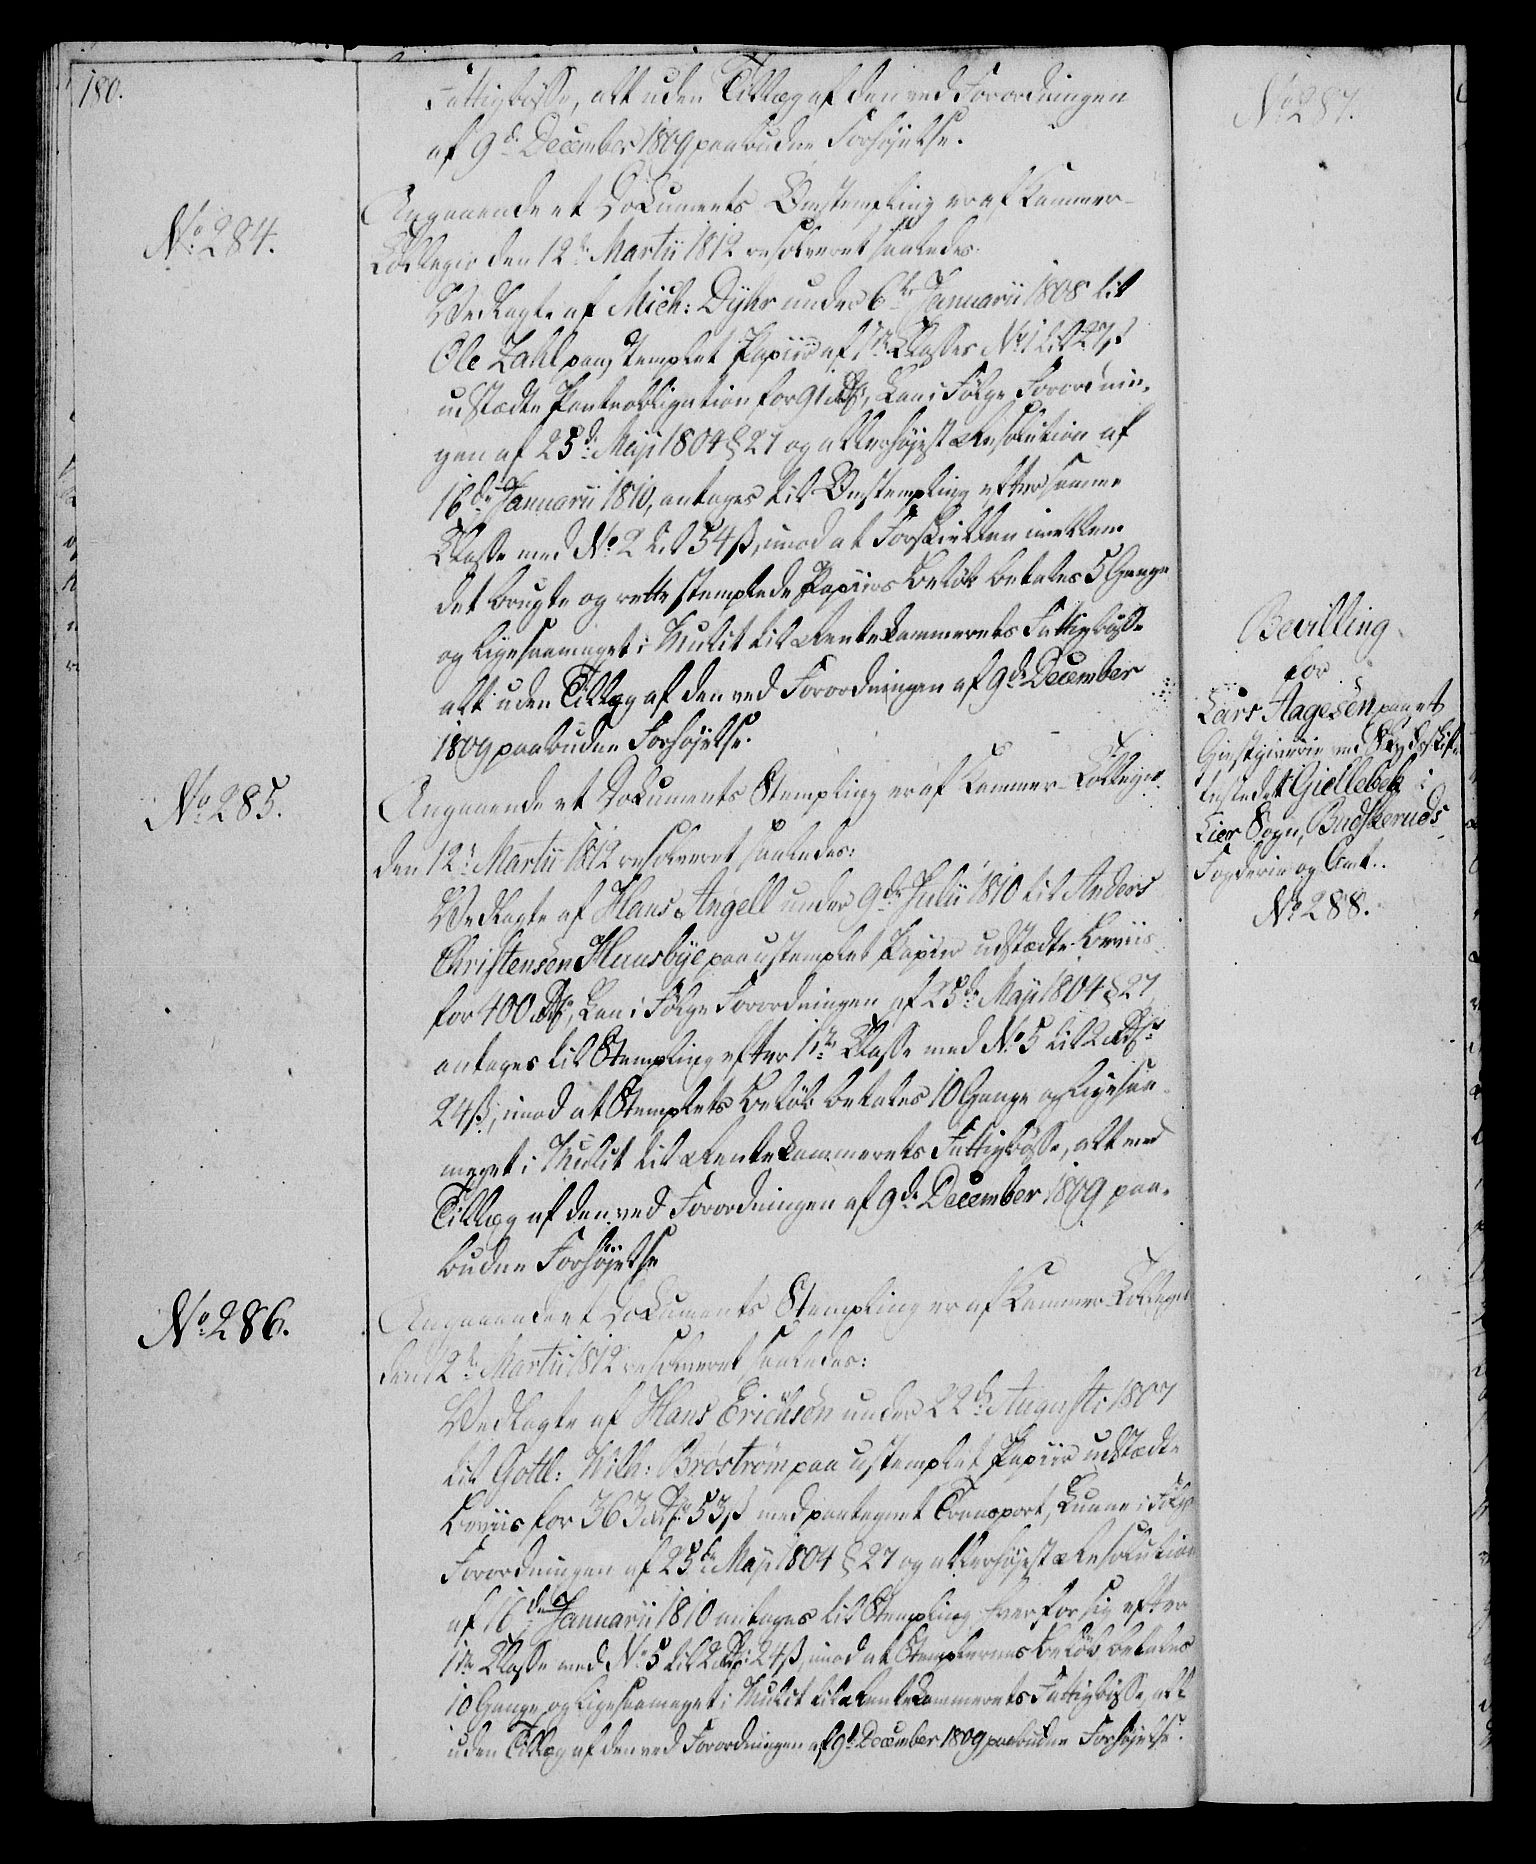 180.
Fattigbøsse, alt uden Tillæg af den ved Forordningen
af 9de December 1809 paabudne Forhøjelse.
No 284.
Angaaende et Dokuments Omstempling er af Kammer-
Collegio den 12te Martii 1812 resolveret saaledes:
Vedlagte af Mich: Dyhr under 6te Januarii 1808 til
Ole Zahl paa stemplet Papiir af 1ste Classes No 1 til 27 ß
udstædte Panteobligation for 91 Rdr, kan i Følge Forordnin-
gen af 25de Maji 1804 § 27 og allerhøjest Resolution af
16de Januarii 1810, antages til Omstempling efter samme
Classe med No 2 til 54 ß, imod at Forskiellen imellem
det brugte og rette stemplede Papiirs Beløb betales 5 Gange
og ligesaameget i Mulct til Rentekammerets Fattigbøsse
alt uden Tillæg af den ved Forordningen af 9de December
1809 paabudne Forhøjelse.
No 285.
Angaaende et Dokuments Stempling er af Kammer-Collegio
den 12te Martii 1812 resolveret saaledes:
Vedlagte af Hans Angell under 9de Julii 1810 til Anders
Christensen Huusbye paa ustemplet Papiir udstædte Beviis
for 400 Rdr, kan i Følge Forordningen af 25de Maji 1804 § 27
antages til Stempling efter 1ste Classe med No 5 til 2 Rdr
24 ß, imod at Stemplets Beløb betales 10 Gange og ligesaa-
meget i Mulct til Rentekammerets Fattigbøsse, alt med
Tillæg af den ved Forordningen af 9de December 1809 paa-
budne Forhøjelse
No 286.
Angaaende et Dokuments Stempling er af Kammer-Collegio
den 12te Martii 1812 resolveret saaledes:
Vedlagte af Hans Erichsön under 22de Augusti 1807
til Gottl: Wilh: Broström paa ustemplet Papiir udstædte
Beviis for 363 Rdr 53 ß med paategnet Transport, kunne i Følge
Forordningen af 25de Maji 1804 § 27 og allerhøjest Resolution
af 16de Januarii 1810 antages til Stempling hver for sig efter
1ste Classe med No 5 til 2 Rdr 24 ß, imod at Stemplernes Beløb betales
10 Gange og ligesaameget i Mulct til Rentekammerets Fattigbøsse, alt
uden Tillæg af den ved Forordningen af 9de December 1809 paabudne Forhøjelse.
No 287.
Bevilling
for
Lars Aagesen paa et
Giestgiverie ved Skydsskif-
testedet Giellebek i
Lier Sogn, Budskeruds
Fogderie og Amt.
No 288.